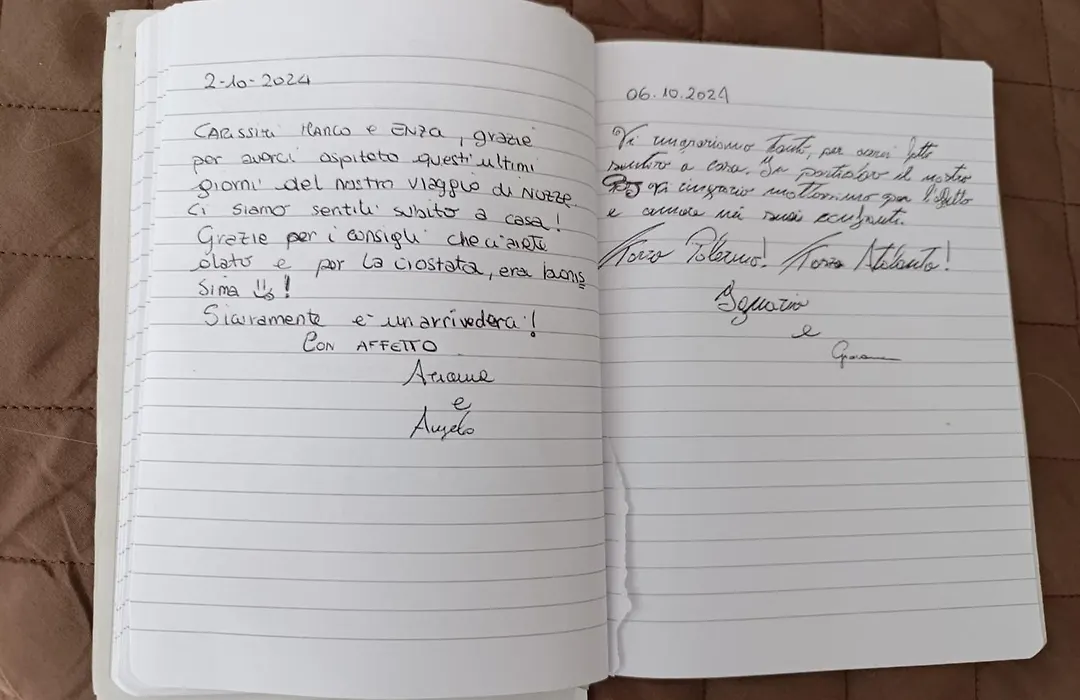 2-10-2024
CARISSIMI MARCO e ENZA, grazie
per averci ospitato questi ultimi
giorni del nostro viaggio di NOZZE.
Ci siamo sentiti subito a casa!
Grazie per i consigli che ci avete
dato e per la crostata, era bonis
sima !
Sicuramente è un arrivederci!
CON AFFETTO
Arianna
e
Angelo
06.10.2024
Vi ringraziamo tanto, per averci fatto
sentire a casa. In particolare il nostro
vi ringrazio moltissimo per l'affetto
e amore nei suoi confronti.
Forza Palermo! Forza Atalanta!
Ignazio
e